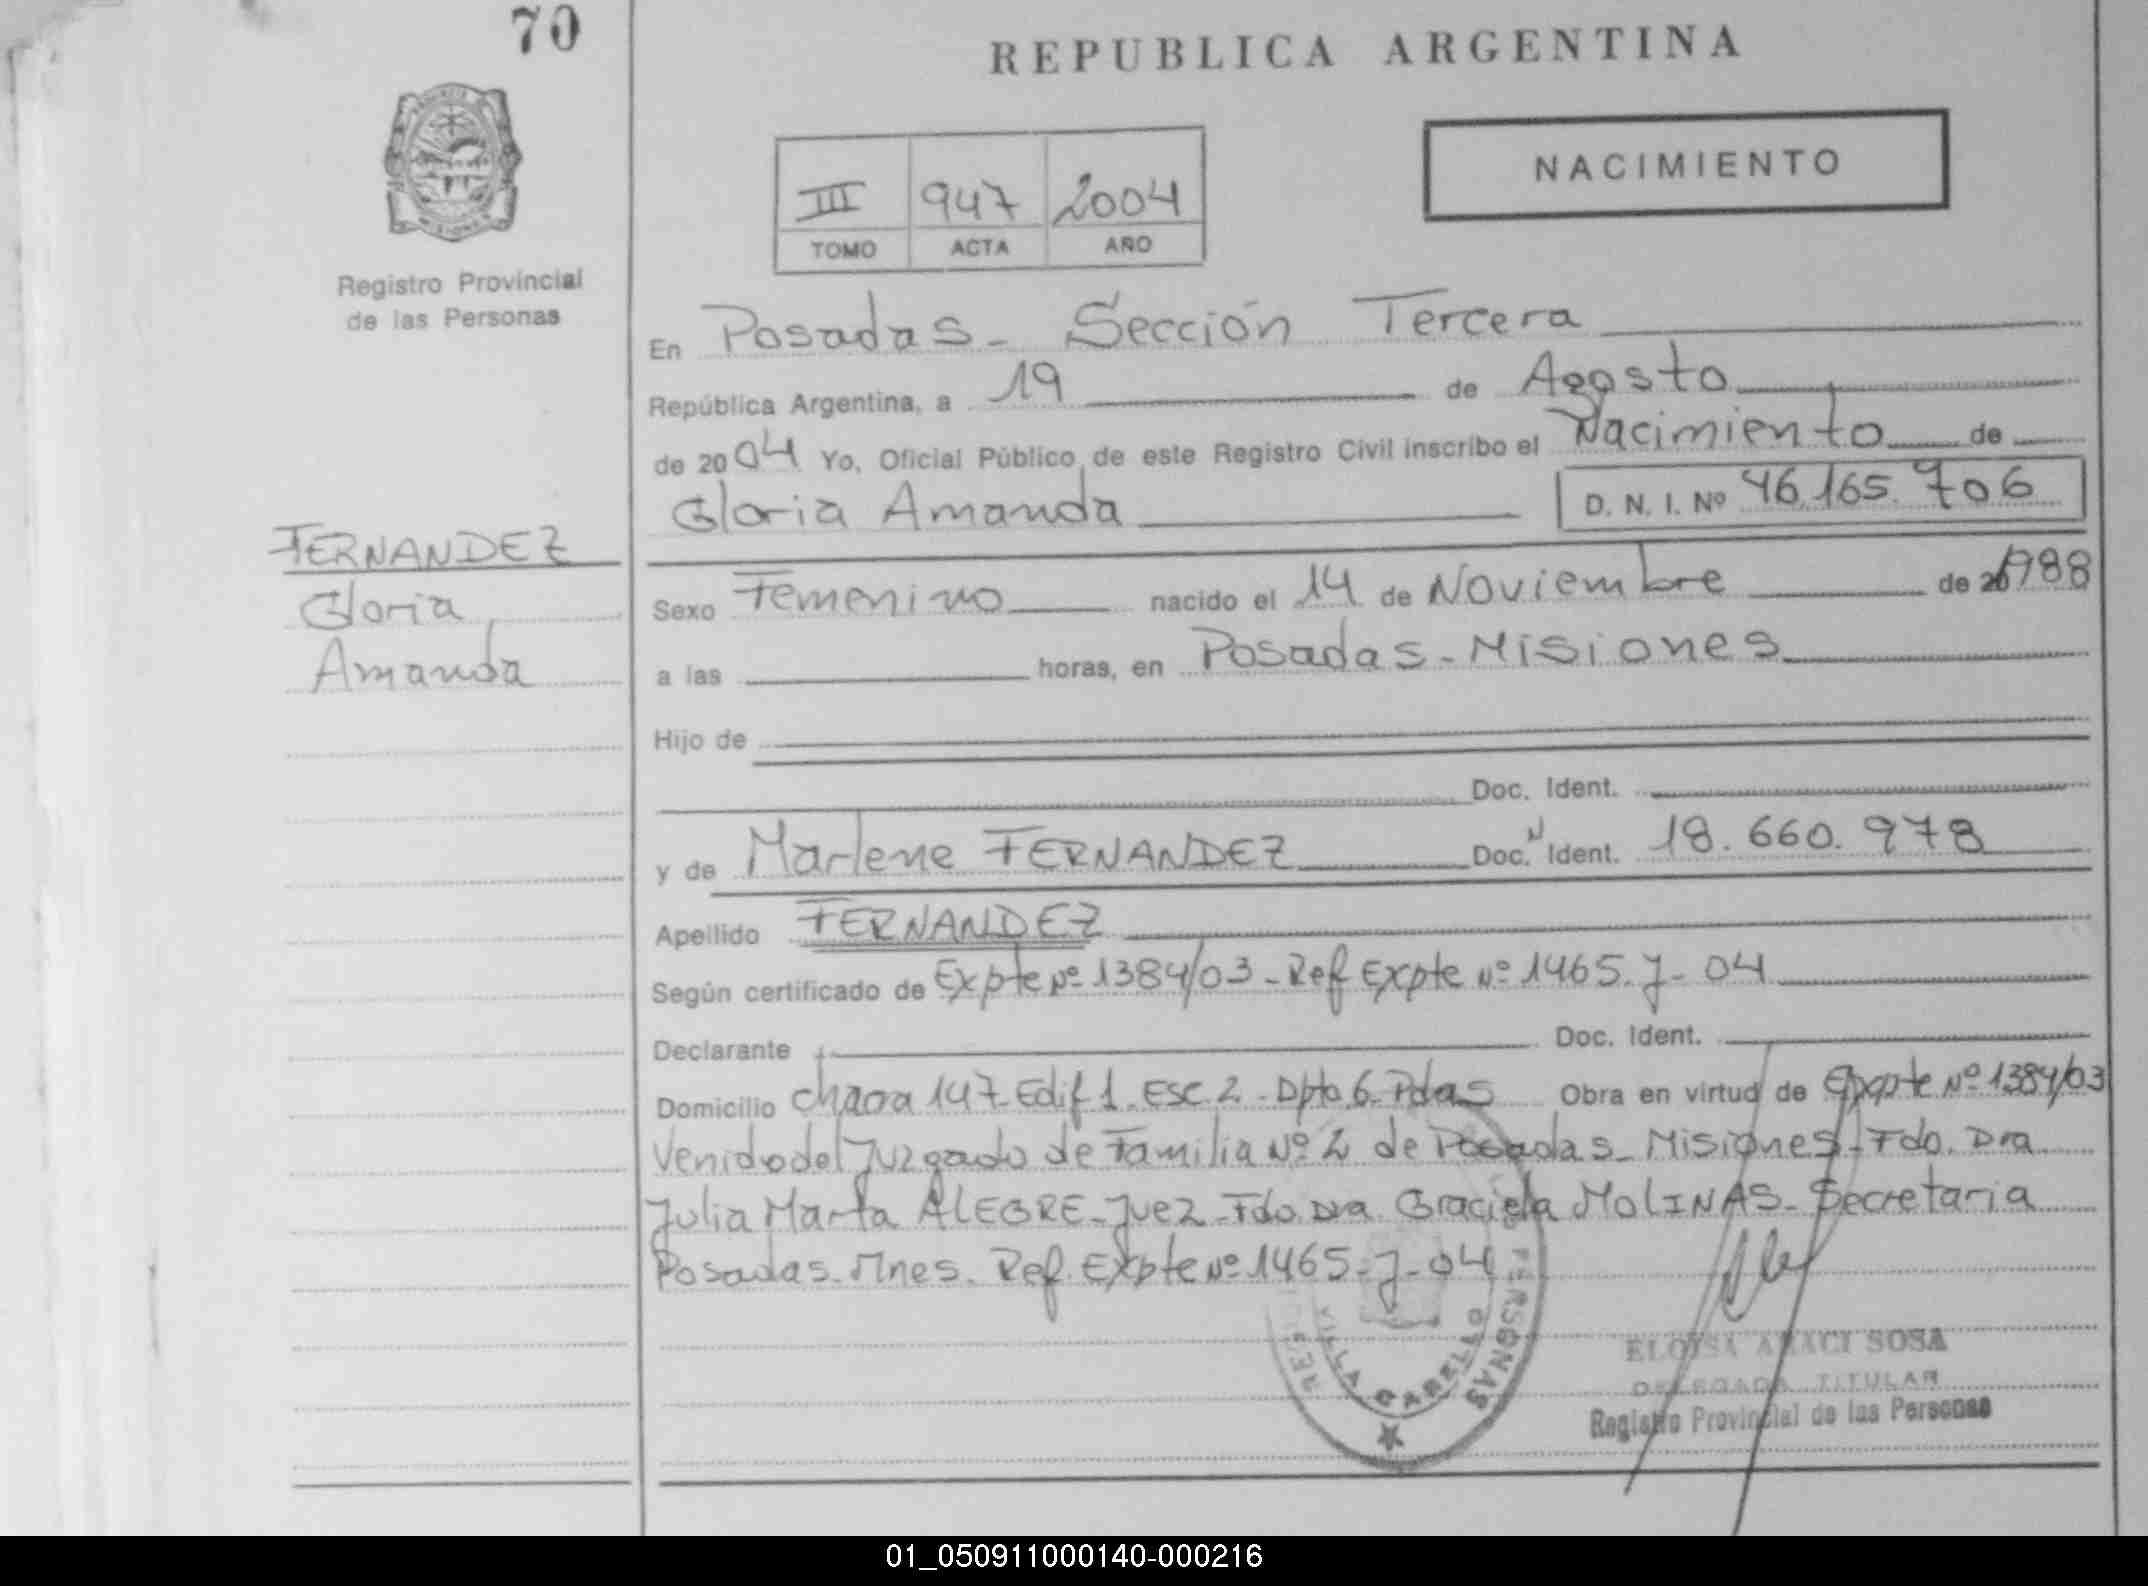 70
REPUBLICA ARGENTINA
NACIMIENTO
III 947 2004
TOMO ACTA AÑO
Registro Provincial
de las Personas
En Posadas - Sección Tercera
República Argentina, a 19 de Agosto
de 2004 Yo, Oficial Público de este Registro Civil inscribo el Nacimiento de
Gloria Amanda D. N. I. Nº 46.165.706
FERNANDEZ
Gloria
Amanda
Sexo Femenino nacido el 14 de Noviembre de 1988
a las horas, en Posadas - Misiones
Hijo de
Doc. Ident.
y de Marlene FERNANDEZ Doc. Ident. 18.660.978
Apellido FERNANDEZ
Según certificado de Expte Nº 1384/03 - Ref Expte Nº 1465-J-04
Declarante Doc. Ident.
Domicilio chacra 147 - Edif 1 - Esc. 2 - Dpto 6 - Pdas Obra en virtud de Expte Nº 1384/03
Venido del Juzgado de Familia Nº 2 de Posadas - Misiones - Fdo. Dra
Julia Marta ALEGRE - Juez - Fdo Dra Graciela MOLINAS - Secretaria
Posadas - Mnes. Ref. Expte Nº 1465-J-04
VILLA GARELLO
PERSONAS
ELOISA ARACI SOSA
DELEGADA TITULAR
Registro Provincial de las Personas
01_050911000140-000216